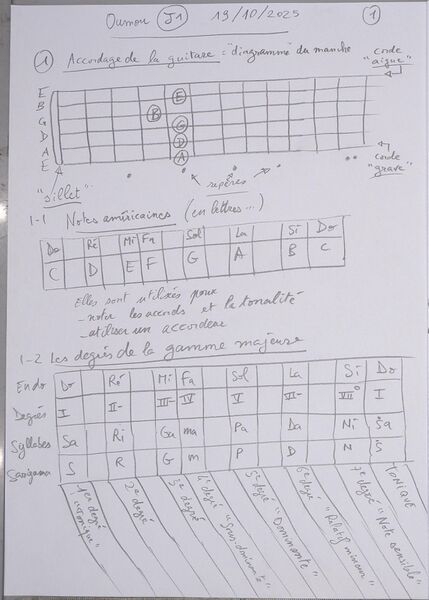 Oumou J1 19/10/2025 1
1 Accordage de la guitare : "diagramme" du manche
corde "aigue"
E
B
G
D
A
E
E
B
G
D
A
corde "grave"
"sillet"
repères
1-1 Notes américaines (en lettres...)
Do Ré Mi Fa Sol La Si Do
C D E F G A B C
Elles sont utilisées pour
- noter les accords et la tonalité
- utiliser un accordeur
1-2 Les degrés de la gamme majeure
En do Do Ré Mi Fa Sol La Si Do
Degrés I II- III- IV V VII° I
Syllabes Sa Ri Ga ma Pa Da Ni Ṡa
Sargama S R G m P D N Ṡ
1er degré "Tonique"
2e degré
3e degré
4e degré "Sous-dominante"
5e degré "Dominante"
6e degré "Relatif mineur"
7e degré "Note sensible"
TONIQUE